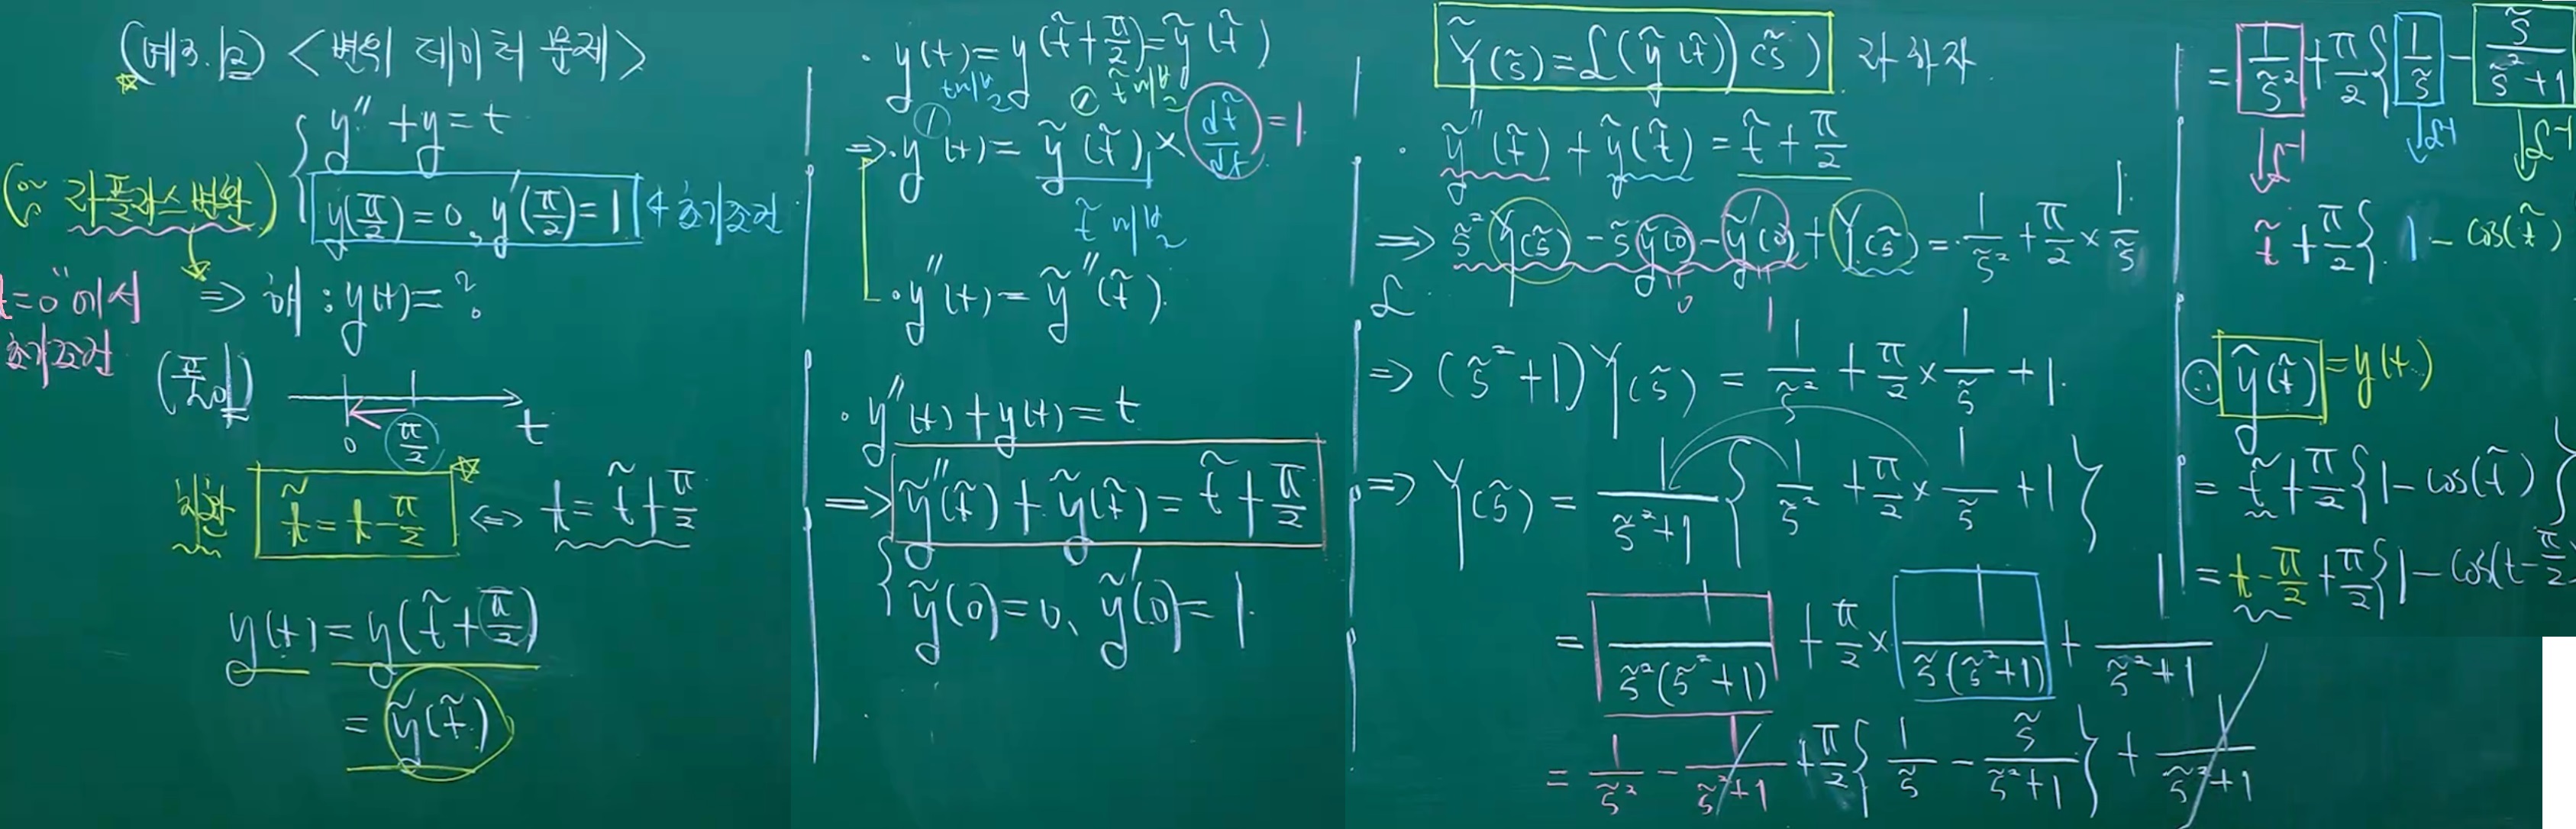 (예3.12) <변위 데이터 문제>
y'' + y = t
(∵ 라플라스변환)
y(π/2) = 0, y'(π/2) = 1 ← 초기조건
t=0"에서
초기조건
⇒ 해 : y(t) = ?
(풀이)
0 π/2 t
치환 t̃ = t - π/2 ⇔ t = t̃ + π/2
y(t) = y(t̃ + π/2)
= ỹ(t̃)
· y(t) = y(t̃ + π/2) = ỹ(t̃)
t미분 t̃미분
⇒ · y'(t) = ỹ'(t̃) × dt̃/dt = 1
t̃미분
· y''(t) = ỹ''(t̃).
· y''(t) + y(t) = t
⇒ ỹ''(t̃) + ỹ(t̃) = t̃ + π/2
ỹ(0) = 0, ỹ'(0) = 1.
Ỹ(s̃) = ℒ(ỹ(t̃))(s̃) 라 하자
· ỹ''(t̃) + ỹ(t̃) = t̃ + π/2
⇒ s̃² Y(s̃) - s̃ ỹ(0) - ỹ'(0) + Y(s̃) = 1/s̃² + π/2 × 1/s̃
ℒ 0 1
⇒ (s̃² + 1) Y(s̃) = 1/s̃² + π/2 × 1/s̃ + 1.
⇒ Y(s̃) = 1/(s̃²+1) { 1/s̃² + π/2 × 1/s̃ + 1 }
= 1/(s̃²(s̃²+1)) + π/2 × 1/(s̃(s̃²+1)) + 1/(s̃²+1)
= 1/s̃² - 1/(s̃²+1) + π/2 { 1/s̃ - s̃/(s̃²+1) } + 1/(s̃²+1)
= 1/s̃² + π/2 { 1/s̃ - s̃/(s̃²+1)
↓ℒ⁻¹ ↓ℒ⁻¹ ↓ℒ⁻¹
t̃ + π/2 { 1 - cos(t̃)
∴ ỹ(t̃) = y(t)
= t̃ + π/2 { 1 - cos(t̃) }
= t - π/2 + π/2 { 1 - cos(t - π/2